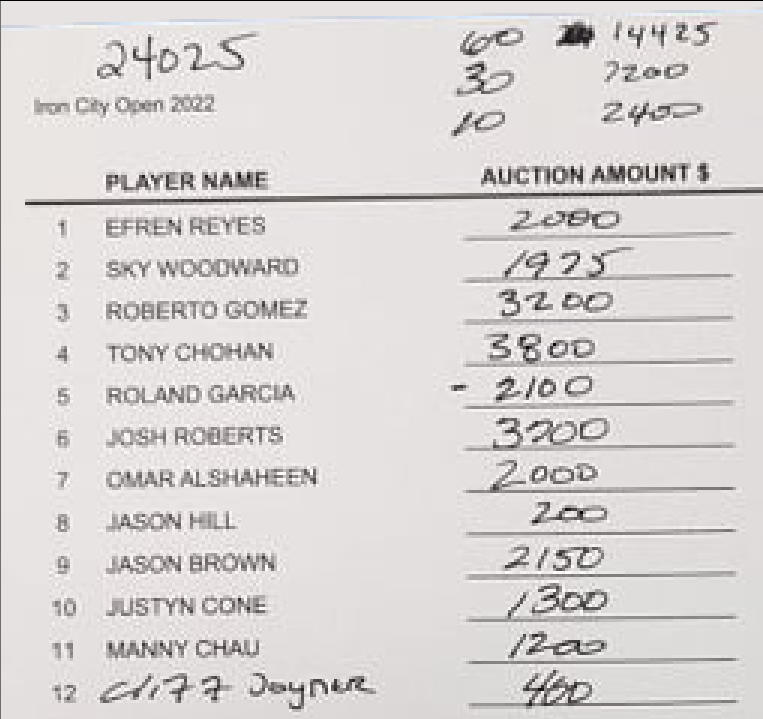 24025
60 14425
Iron City Open 2022
30 7200
10 2400
PLAYER NAME AUCTION AMOUNT $
1 EFREN REYES 2000
2 SKY WOODWARD 1975
3 ROBERTO GOMEZ 3200
4 TONY CHOHAN 3800
5 ROLAND GARCIA - 2100
6 JOSH ROBERTS 3700
7 OMAR ALSHAHEEN 2000
8 JASON HILL 200
9 JASON BROWN 2150
10 JUSTYN CONE 1300
11 MANNY CHAU 1200
12 Cliff Joyner 400